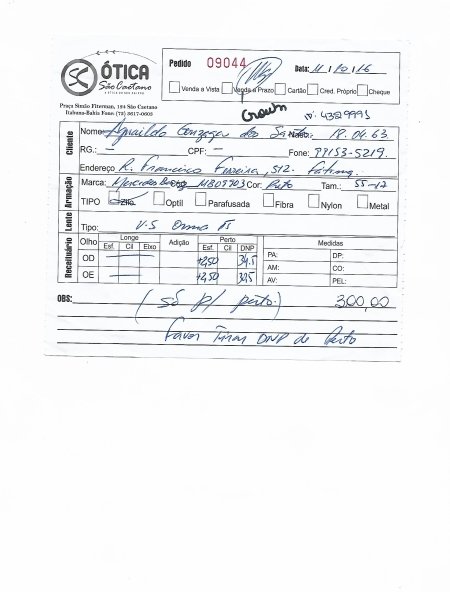 SC ÓTICA
São Caetano
A ÓTICA DO SEU BAIRRO
Praça Simão Fiterman, 194 São Caetano
Itabuna-Bahia Fone: (73) 3617-0605
Pedido 09044 Data: 11/10/16
Venda a Vista Venda a Prazo Cartão Créd. Próprio Cheque
Crown ID: 4329993
Cliente
Nome: Agnaildo Gonzaga dos Santos Nasc.: 18.04.63
RG.: – CPF: – Fone: 99153-5219
Endereço R. Francisco Ferreira, 512. Fátima.
Armação
Marca: Mercedes Benz Cód. MB09903 Cor: Preto Tam.: 55-17
TIPO Zilo Optil Parafusada Fibra Nylon Metal
Lente
Tipo: V.S
Receituário
Olho Longe Adição Perto Medidas
Esf. Cil Eixo Esf. Cil DNP
OD +2,50 34.5 PA: DP:
AM: CO:
OE +2,50 32.5 AV: PEL:
OBS: (só p/ perto.) 300,00
Favor Tirar DNP de Perto